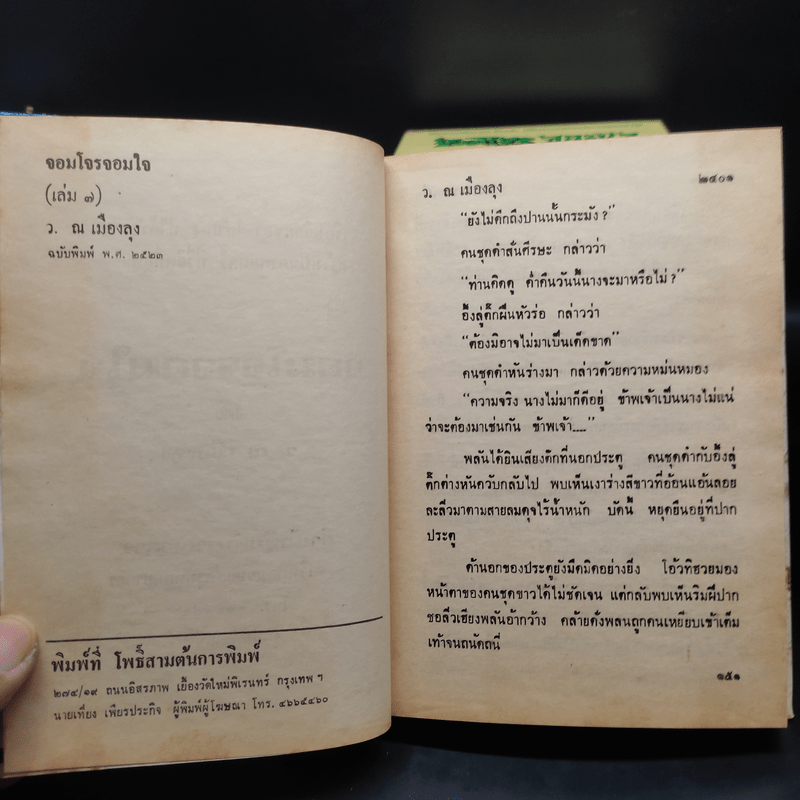 จอมโจรจอมใจ
(เล่ม ๗)
ว. ณ เมืองลุง
ฉบับพิมพ์ พ.ศ. ๒๕๒๓
พิมพ์ที่ โพธิ์สามต้นการพิมพ์
๒๗๔/๑๙ ถนนอิสรภาพ เยื้องวัดใหม่พิเรนทร์ กรุงเทพ ฯ
นายเที่ยง เพียรประกิจ ผู้พิมพ์ผู้โฆษณา โทร. ๔๖๖๕๔๖๐
ว. ณ เมืองลุง
๒๕๐๑
“ยังไม่ดึกถึงปานนั้นกระมัง?”
คนชุดดำสั่นศีรษะ กล่าวว่า
“ท่านคิดดู ค่ำคืนวันนี้นางจะมาหรือไม่?”
อึ้งลู่ติ๊กฝืนหัวร่อ กล่าวว่า
“ต้องมิอาจไม่มาเป็นเด็ดขาด”
คนชุดดำหันร่างมา กล่าวด้วยความหม่นหมอง
“ความจริง นางไม่มาก็ดีอยู่ ข้าพเจ้าเป็นนางไม่แน่
ว่าจะต้องมาเช่นกัน ข้าพเจ้า....”
พลันได้ยินเสียงดึกที่นอกประตู คนชุดดำกับอึ้งลู่
ติ๊กต่างหันควับกลับไป พบเห็นเงาร่างสีขาวที่อ้อนแอ้นลอย
ละลิ่วมาตามสายลมดุจไร้น้ำหนัก บัดนี้ หยุดยืนอยู่ที่ปาก
ประตู
ด้านอกของประตูยังมืดมิดอย่างยิ่ง โอ้วทิฮวยมอง
หน้าตาของคนชุดขาวได้ไม่ชัดเจน แต่กลับพบเห็นริมฝีปาก
ซอลิ้วเฮียงพลันอ้ากว้าง คล้ายดั่งพลันถูกคนเหยียบเข้าเต็ม
เท้าจนถนัดถนี่
๑๕๑